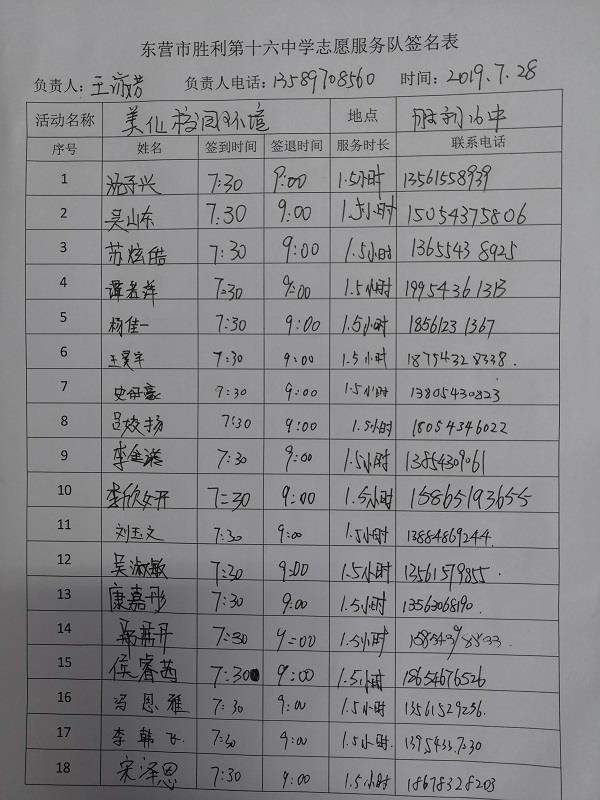 东营市胜利第十六中学志愿服务队签名表
负责人: 负责人电话:13589708560 时间: 2019.7.28
活动名称 美化校园环境 地点 胜利16中
序号 姓名 签到时间 签退时间 服务时长 联系电话
1 7:30 9:00 1.5小时 13561558939
2 吴山东 7:30 9:00 1.5小时 15054375806
3 苏炫皓 7:30 9:00 1.5小时 13655438925
4 7:30 9:00 1.5小时 19954361313
5 杨佳一 7:30 9:00 1.5小时 18561231367
6 王昊宇 7:30 9:00 1.5小时 18754328338.
7 7:30 9:00 1.5小时 13805430823
8 7:30 9:00 1.5小时 18054346022
9 7:30 9:00 1.5小时 13854309061
10 李欣妍 7:30 9:00 1.5小时 15865193655
11 刘玉文 7:30 9:00 1.5小时 13884869244.
12 吴淑敏 7:30 9:00 1.5小时 13561579855.
13 康嘉彤 7:30 9:00 1.5小时 13563068190.
14 7:30 9:00 1.5小时
15 侯睿茜 7:30 9:00 1.5小时 18654676526
16 冯恩雅 7:30 9:00 1.5小时 13561529256.
17 李韩飞 7:30 9:00 1.5小时
18 宋泽恩 7:30 9:00 1.5小时 18678328203